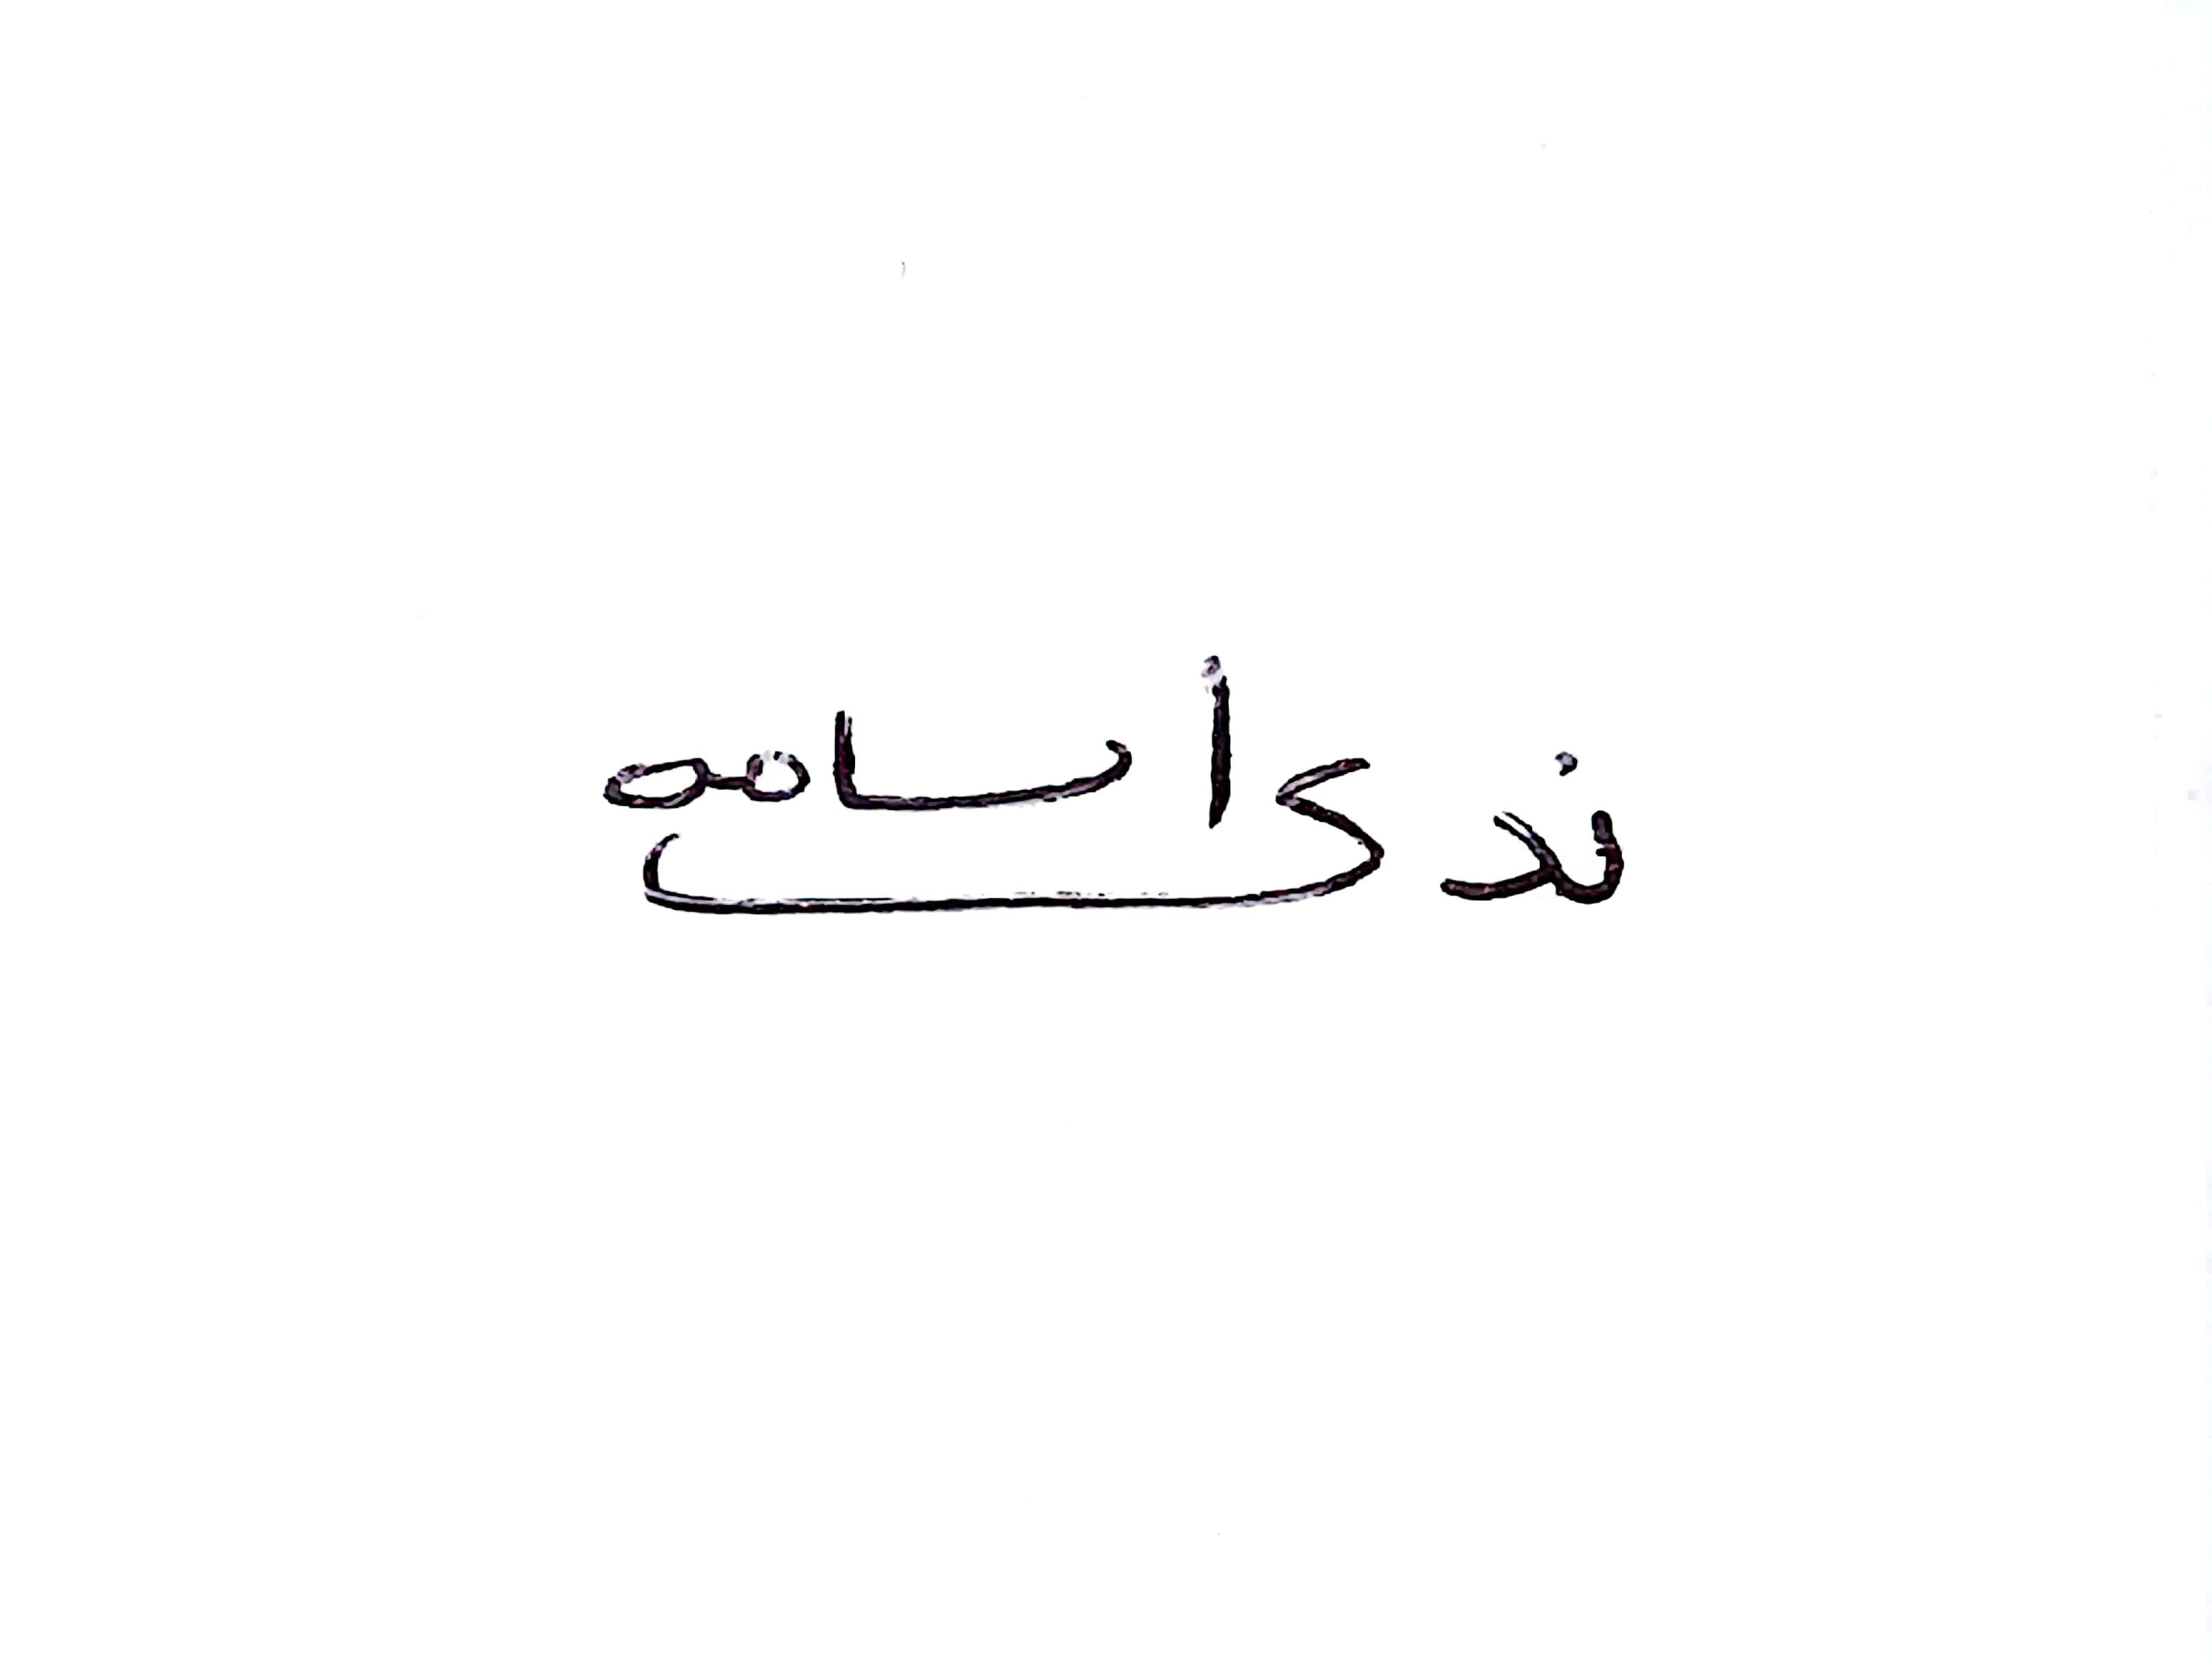 ندى أسامه